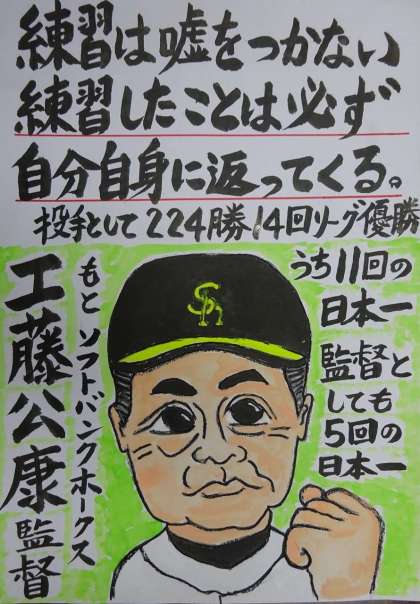 練習は嘘をつかない
練習したことは必ず
自分自身に返ってくる。
投手として224勝14回リーグ優勝
うち11回の
日本一
監督と
しても
5回の
日本一
もと ソフトバンクホークス
工藤公康監督
SH